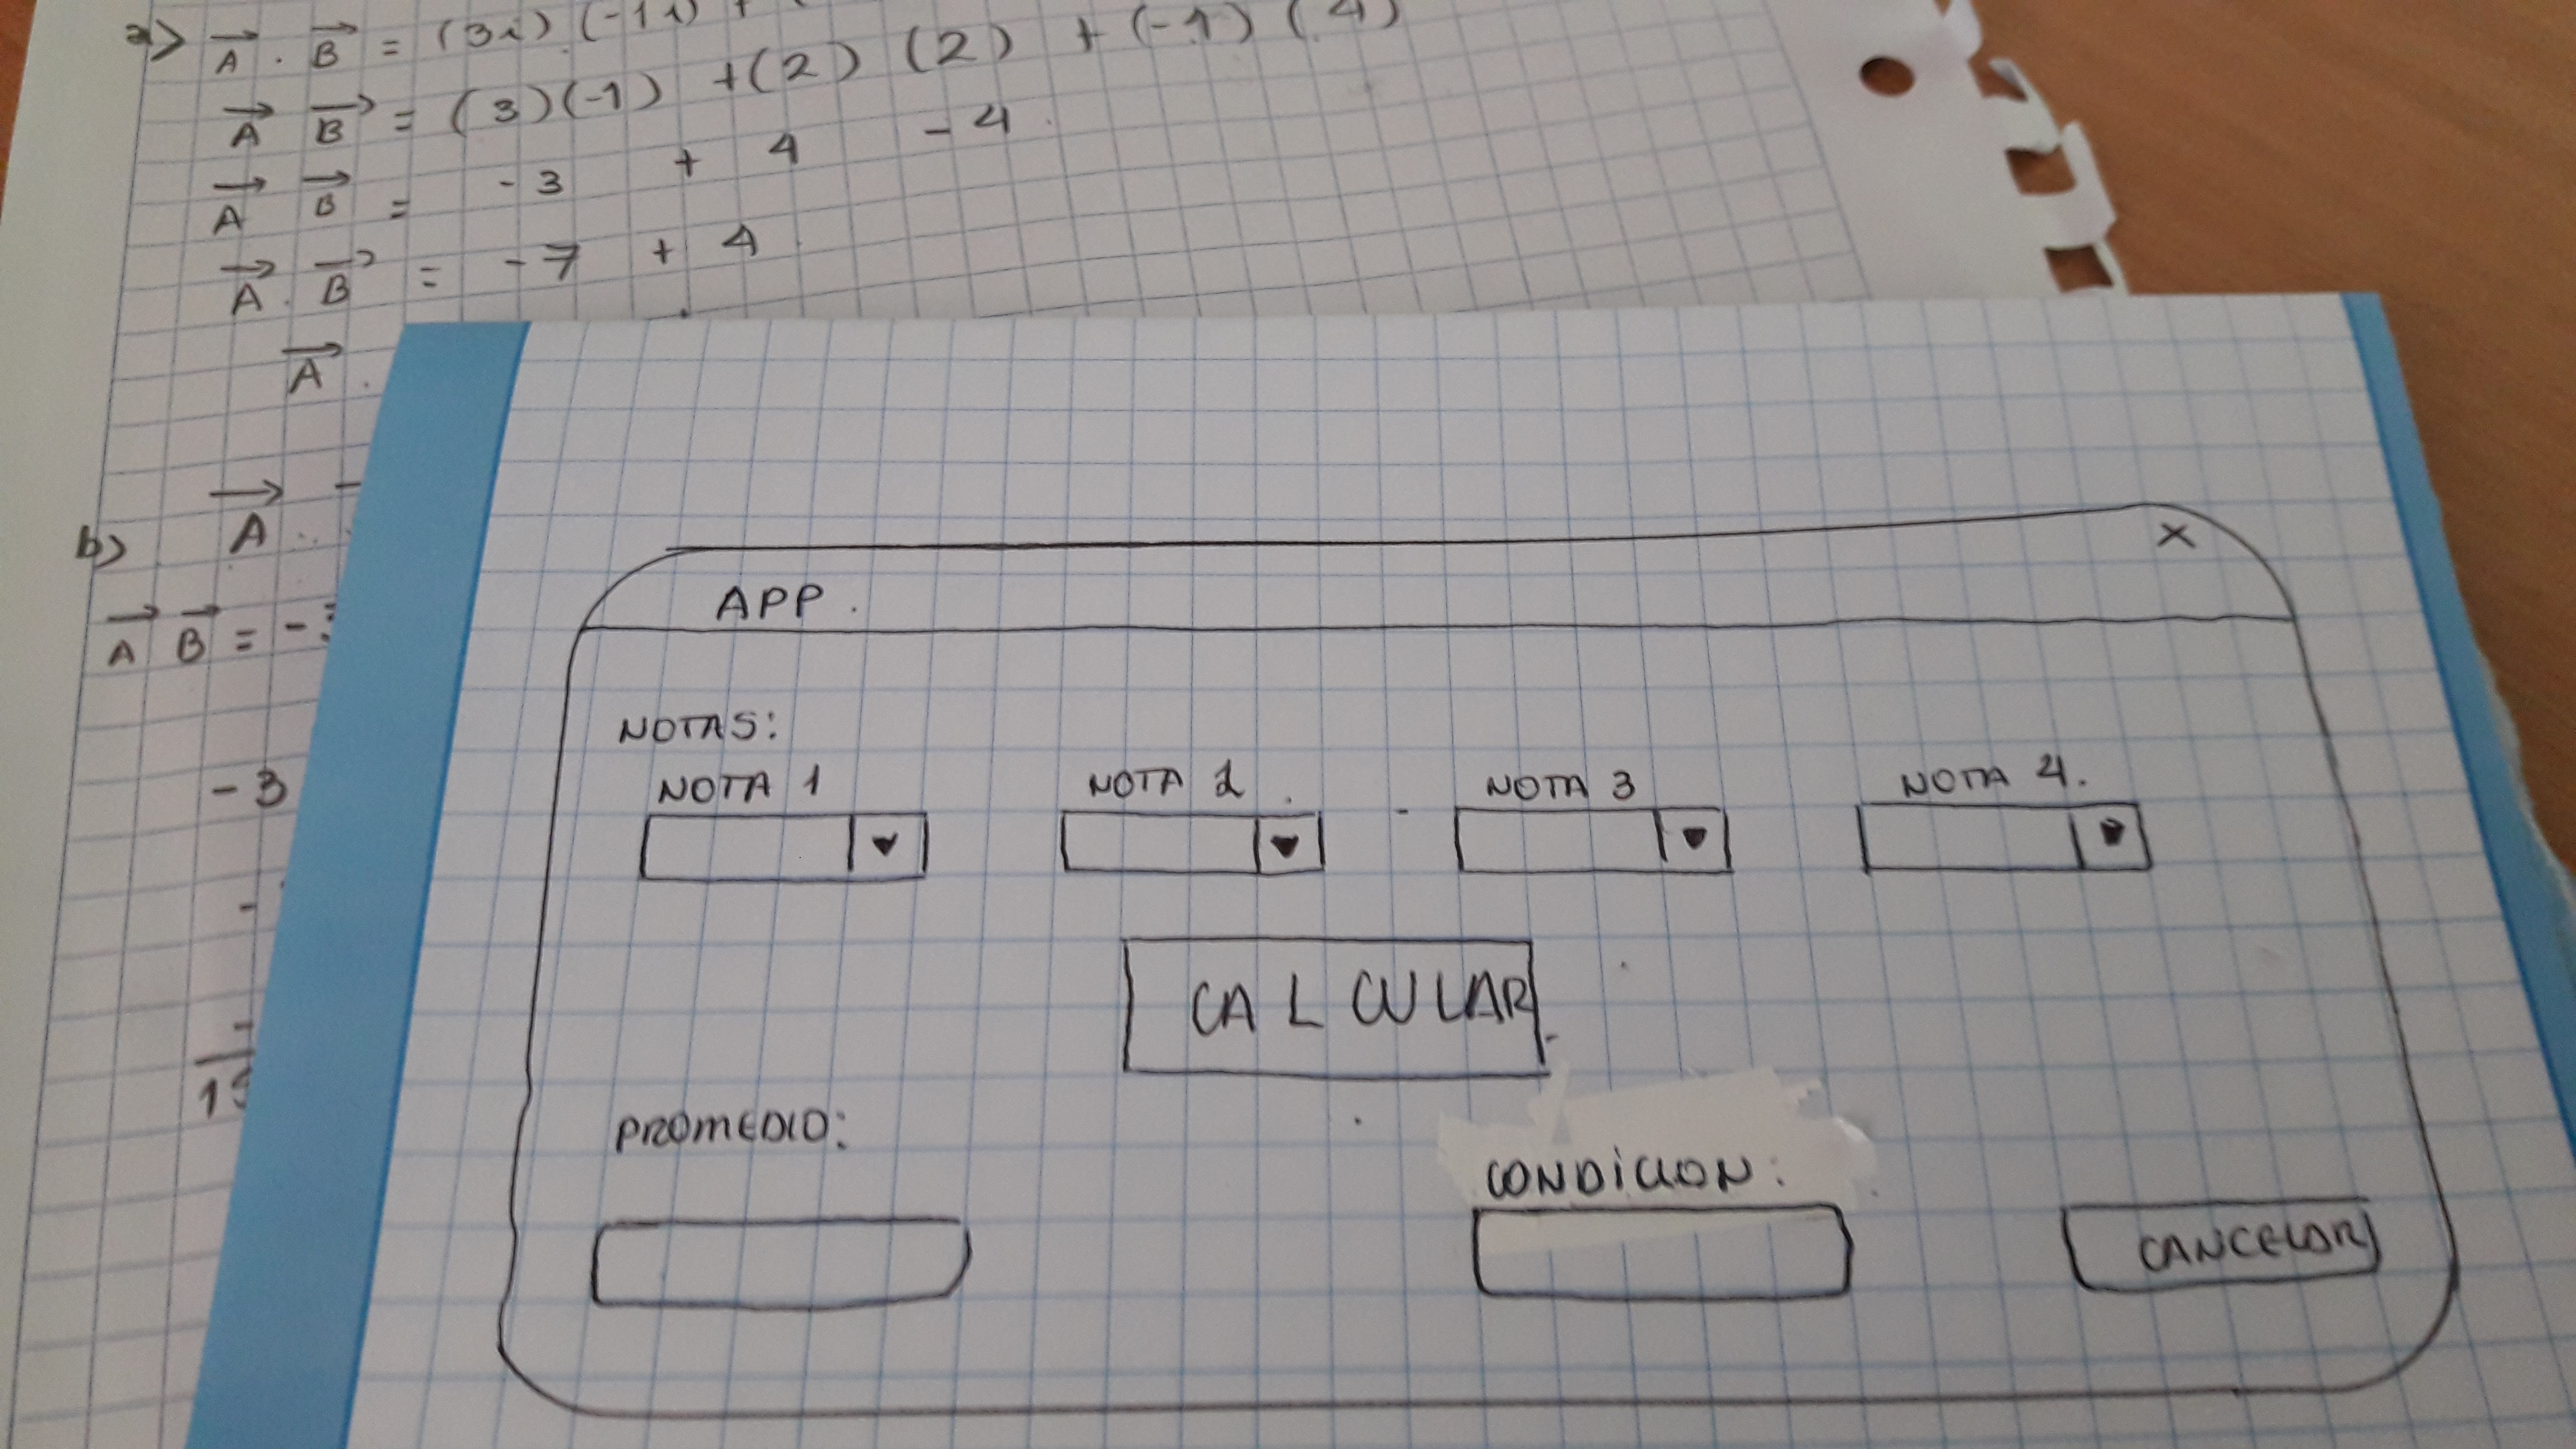 a) A . B = (3i) (-1i) +
A B = (3)(-1) +(2) (2) + (-1) (4)
A B = -3 + 4 - 4
A . B = -7 + 4
A .
b) A .
A B = -3
-3
-
-
15
X
APP.
NOTAS:
NOTA 1 NOTA 2. NOTA 3 NOTA 4.
CALCULAR
PROMEDIO:
CONDICION:
CANCELAR